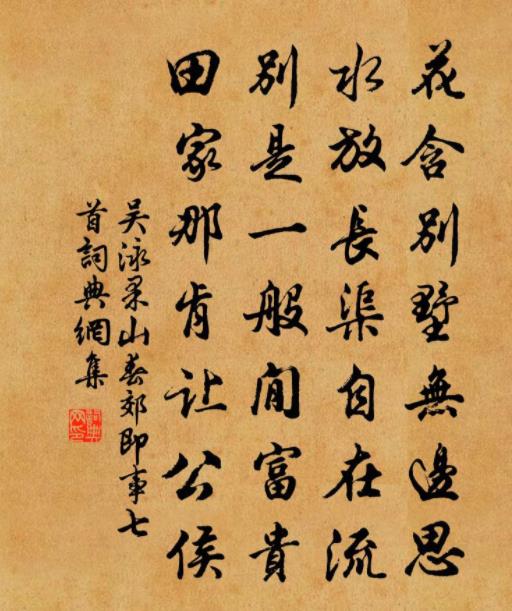 花含别墅無邊思
水放長渠自在流
别是一般閒富貴
田家那肯让公侯
吴泳果山春郊即事七
首詞典網集